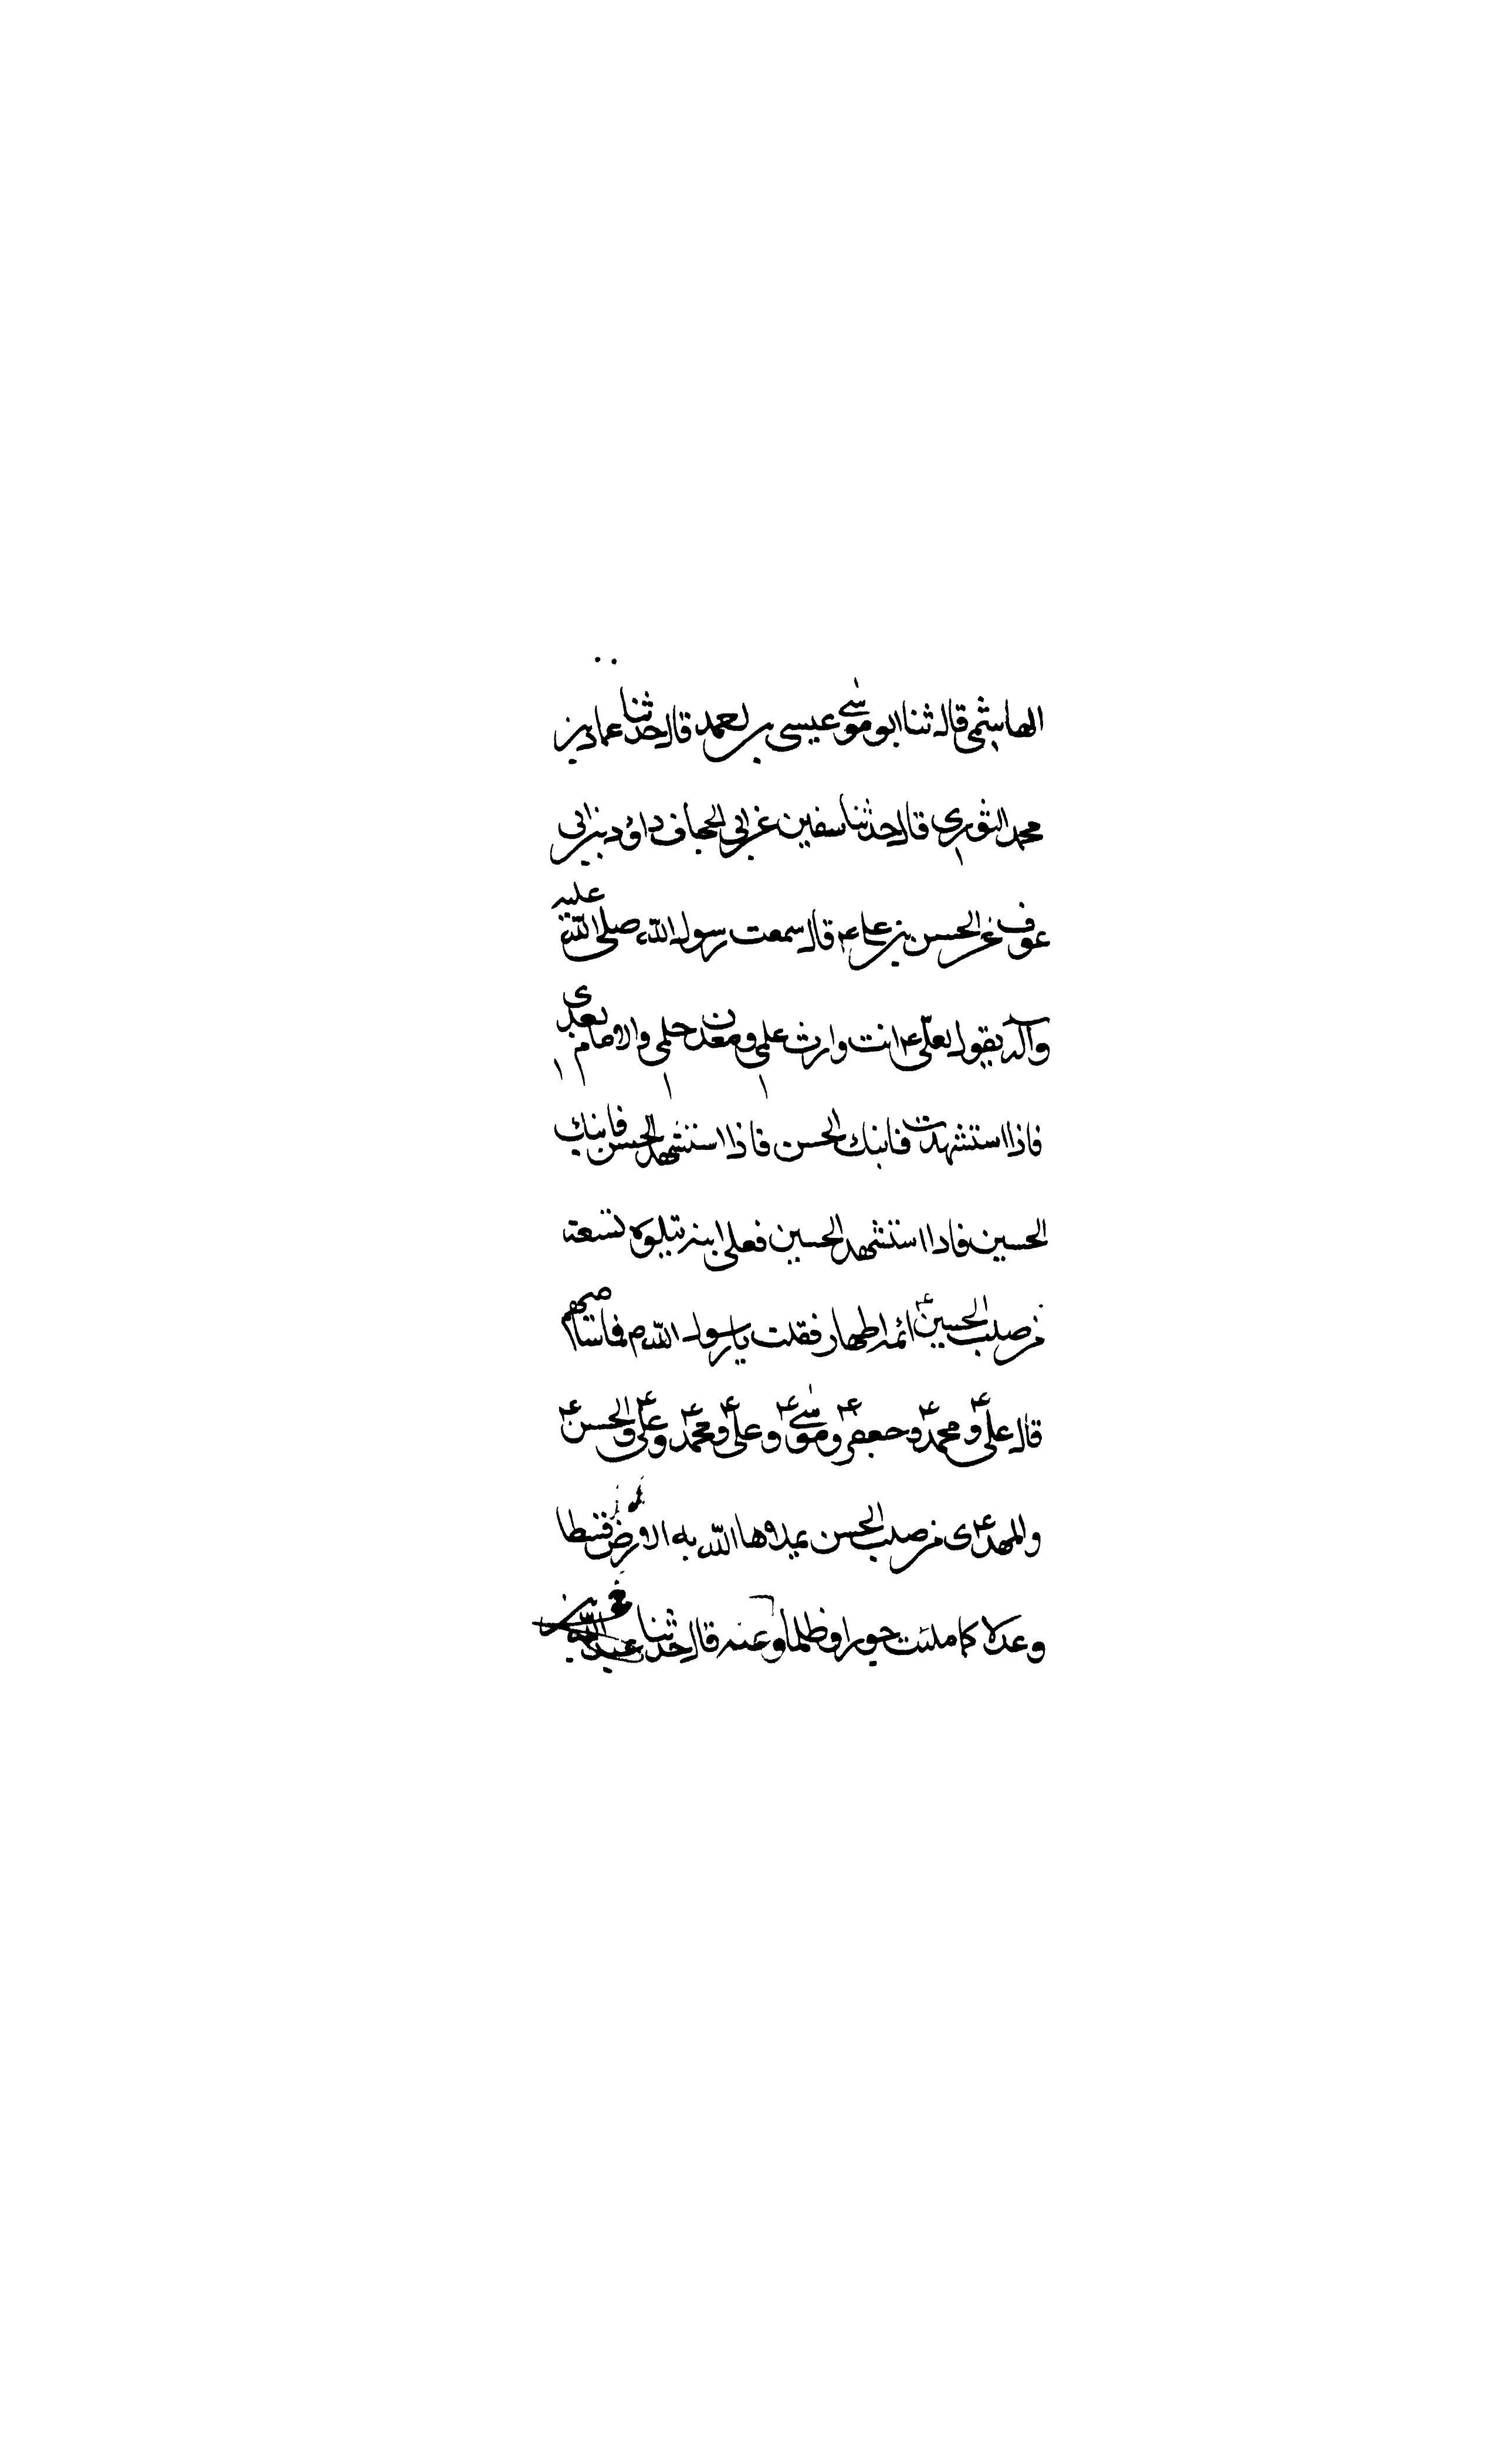 الهاشمي قال ثنا ابو موسى عيسى بن احمد قال حدثنا عماد بن
محمد الثوري قال حدثنا سفين عن ابي الجحاف داؤد بن ابي
عوف عن الحسن بن علي ع قال سمعت رسول الله صلى الله عليه
وآله يقول لعلي ع انت وارث علمي ومعدن حلمي والامام بعدي
فاذا استشهدت فابنك الحسن فاذا استشهد الحسن فابنك
الحسين فاذا استشهد الحسين فعلي ابنه يتلوه تسعة
من صلب الحسين ع ائمه اطهار فقلت يا رسول الله ص فما اسماؤهم
قال علي ع و محمد ع و جعفر ع و موسى ع و علي ع و محمد ع و علي ع والحسن ع
والمهدي ع من صلب الحسن يملاها الله به الارض قسطا
وعدلا كما ملئت جورا وظلما وعنه قال حدثنا